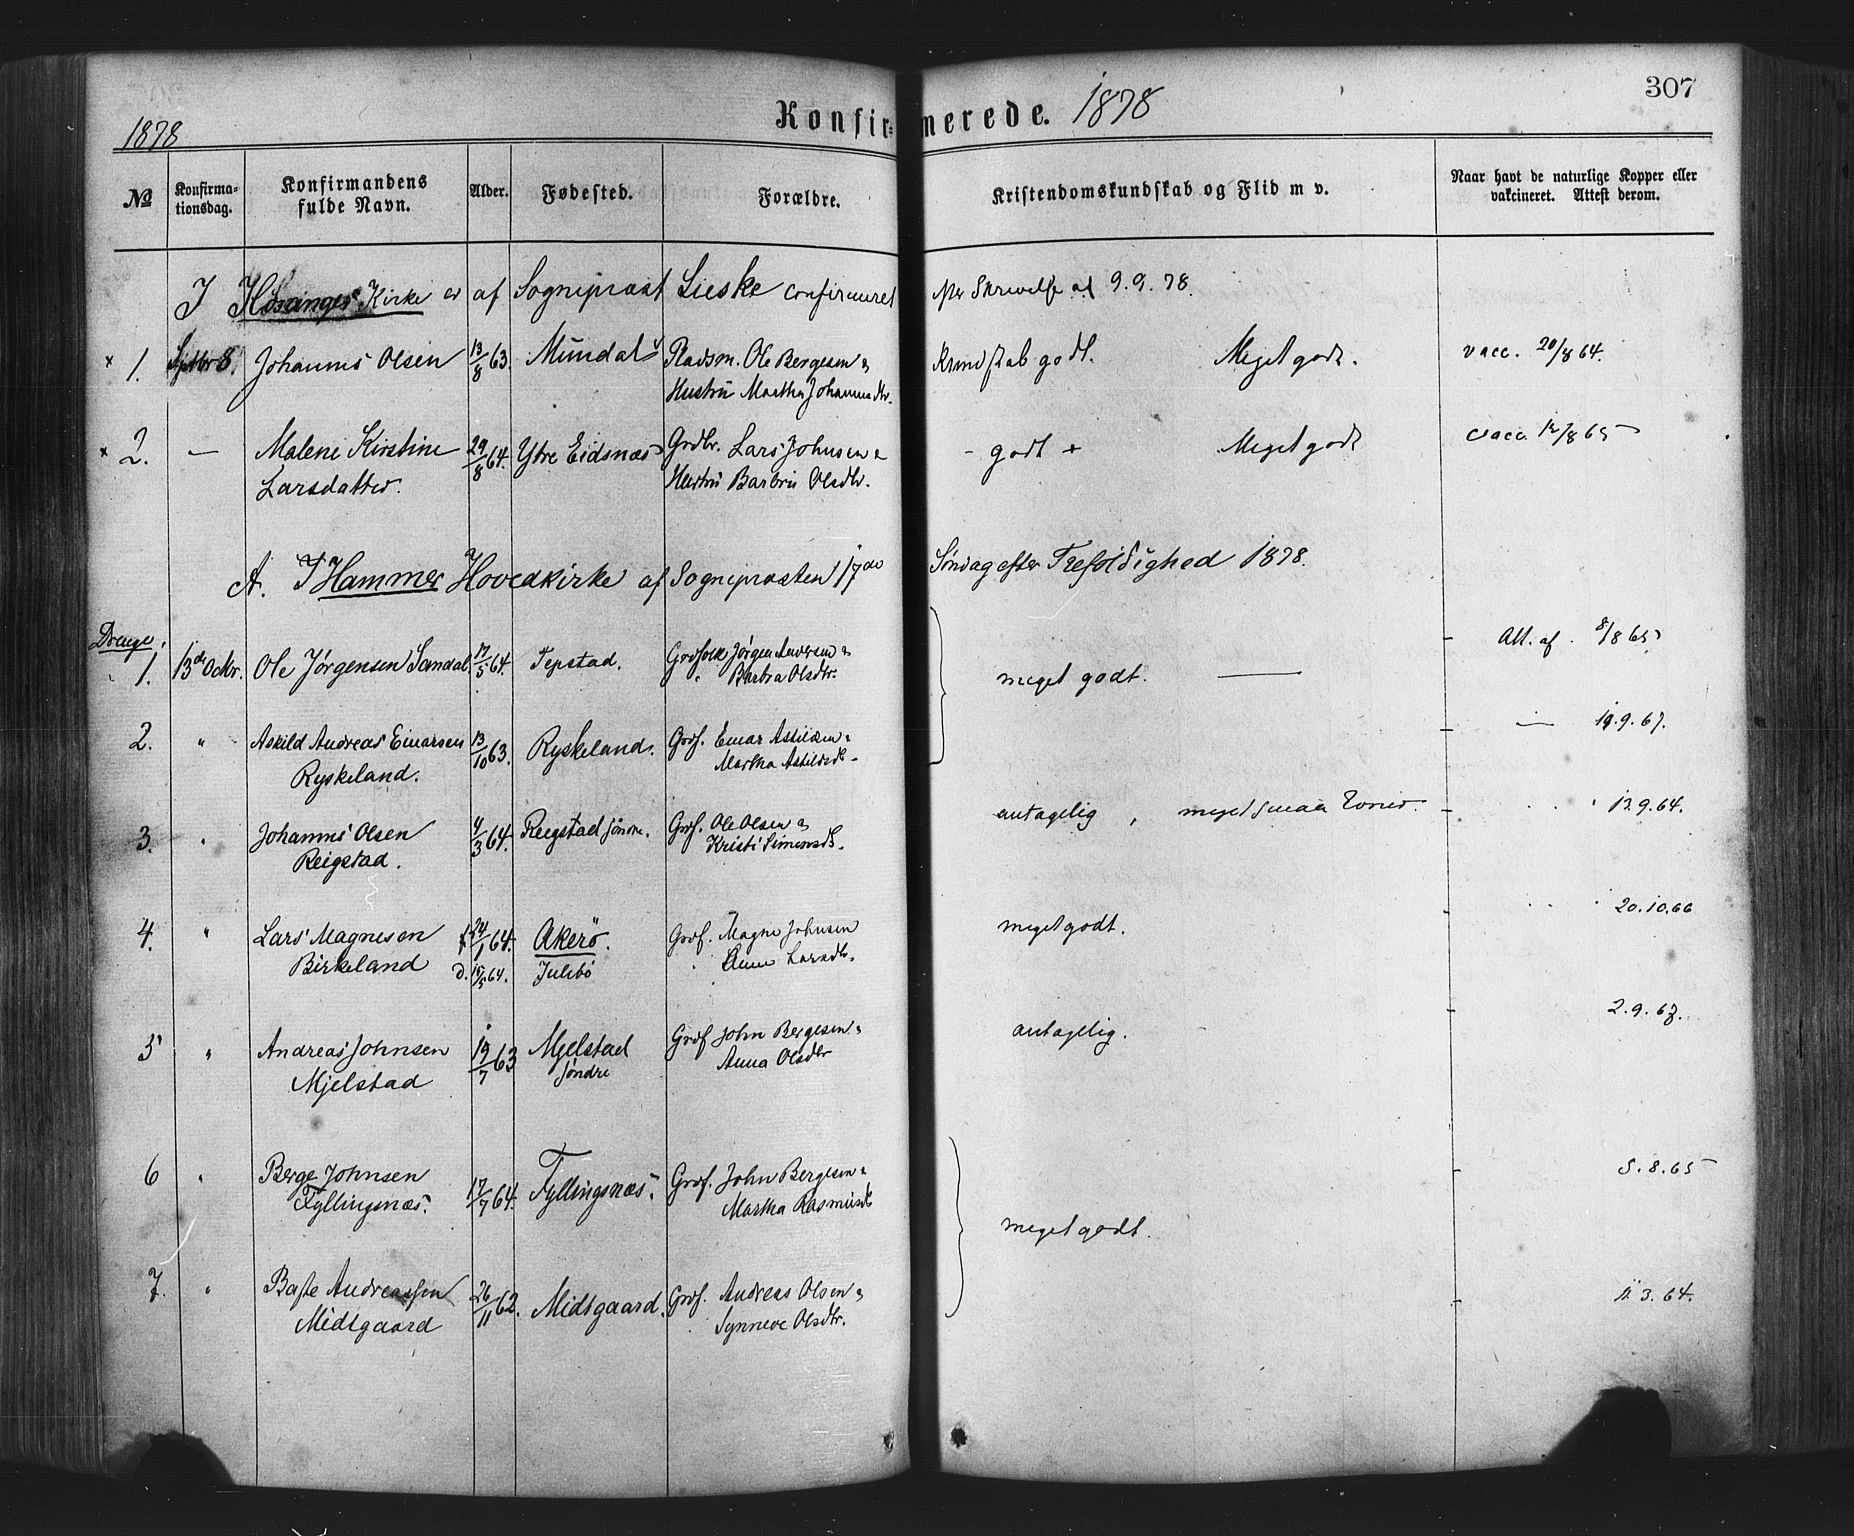 307
Konfirmerede. 1878
1878
No
Konfirma-
tionsdag.
Konfirmandens
fulde Navn.
Alder.
Fødested.
Forældre.
Kristendomskundskab og Flid m v.
Naar havt de naturlige Kopper eller
vakcineret. Attest derom.
I Hosanger Kirke er af Sogneprest Lieske confirmeret efter Skrivelse af 9.9.78.
x 1. Septbr 8. Johannes Olsen 13/8 63. Mundal Pladsm. Ole Bergesen & Kundskab godt. Meget godt. vacc. 20/8 64.
Hustru Martha Johannesdtr.
x 2. — Malene Kirstine 29/8 64. Ytre Eidsnæs Grdbr. Lars Johnsen & - godt + Meget godt vacc. 12/8 65
Larsdatter. Hustru Barbru Olsdtr.
A. I Hammer Hovedkirke af Sognepresten 17de Søndag efter Trefoldighed 1878.
Drenge.
1. 13de Octbr. Ole Jørgensen Sandal. 17/5 64. Tepstad. Grdfolk Jørgen Andersen & meget godt. — - Att. af. 8/8 65
" Barbra Olsdtr.
2. " Askild Andreas Einarsen 13/10 63. Ryskeland. Grdf. Einar Askildsen & - — 19.9.67.
Ryskeland. Martha Askildsdtr.
3. " Johannes Olsen 4/3 64. Reigstad søndre. Grdf. Ole Olsen & antagelig, meget smaa Evner. - " " " 13.9.64.
Reigstad. Kristi Simonsdtr.
4. " Lars Magnesen f 24/1 64. Akerö. Grdf. Magne Johnsen meget godt. - " " " 20.10.66
Birkeland d. 15/5 64. Julebö " Anne Larsdtr.
5 " Andreas Johnsen 19/7 63 Mjelstad Grdf John Bergesen & antagelig. - 2.9.67.
Mjelstad søndre Anna Olsdtr
6 " Berge Johnsen 17/7 64. Fyllingsnæs. Grdf. John Bergesen & - 5.8.65
Fyllingsnæs. Martha Rasmusdtr
meget godt.
7. " Baste Andreassen 26/11 62. Midtgaard. Grdf. Andreas Olsen & - 11 3.64.
Midtgaard Synneve Olsdtr.